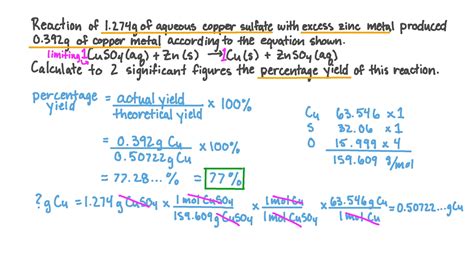 Reaction of 1.274g of aqueous copper sulfate with excess zinc metal produced
0.392g of copper metal according to the equation shown.
limiting 1CuSO₄(aq) + Zn(s) → 1Cu(s) + ZnSO₄(aq)
Calculate to 2 significant figures the percentage yield of this reaction.
percentage yield = actual yield / theoretical yield × 100%
= 0.392g Cu / 0.50722g Cu × 100%
= 77.28...% = 77%
Cu 63.546 × 1
S 32.06 × 1
O 15.999 × 4
159.609 g/mol
? g Cu = 1.274 g CuSO₄ × 1 mol CuSO₄ / 159.609 g CuSO₄ × 1 mol Cu / 1 mol CuSO₄ × 63.546 g Cu / 1 mol Cu = 0.50722...g Cu